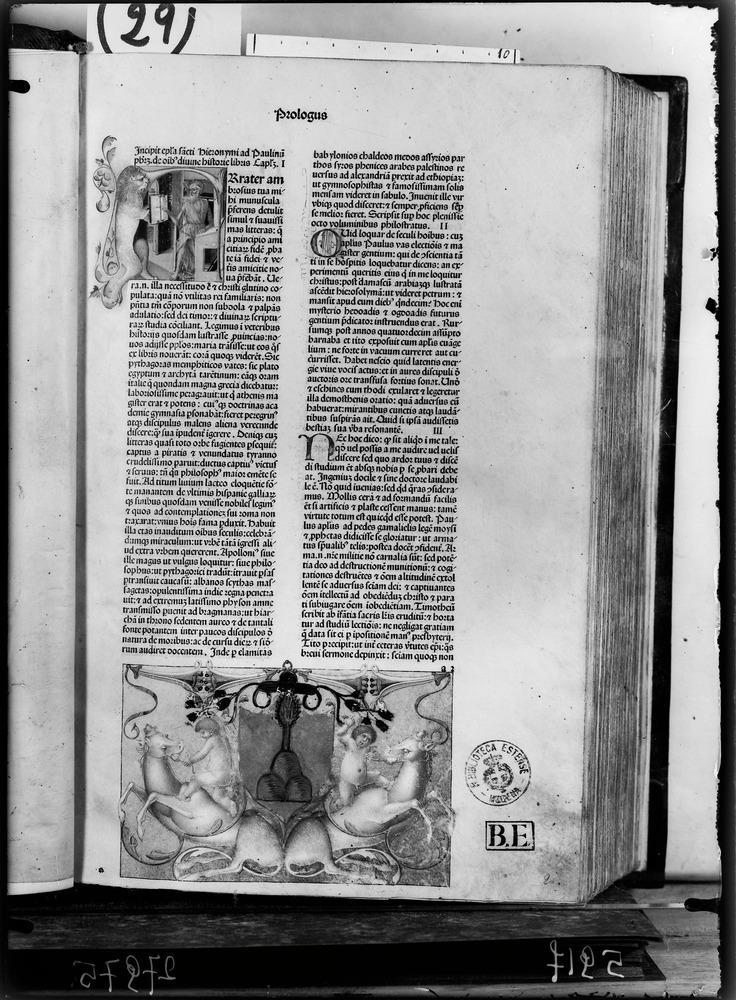 (29)
10
Prologus
Incipit epl'a sācti Hieronymi ad Paulinū
pb̄rȝ. de oībꝰ diuine historie libris Capl'ȝ. I
Rrater am
brosius tua mi
hi munuscula
ꝑferens detulit
simul ⁊ suauissi
mas litteras: ꝗ̄
a principio ami
citiaꝝ fidē ꝓba
te iā fidei ⁊ ve
tis amicitie no
ua p̄ferebāt. Ue
ra.n. illa necessitudo ē ⁊ christi glutino co
pulata: quā nō vtilitas rei familiaris: non
pn̄tia tm̄ corporum non subdola ⁊ palpās
adulatio: sed dei timor: ⁊ diuinaꝝ scriptu
raꝝ studia cōciliant. Legimus i veteribus
historiis quosdam lustrasse ꝓuincias: no
uos adijsse pplos: maria trāsisse: ut eos qs̄
ex libris nouerāt: corā quoqꝫ viderēt. Sic
pythagoras memphiticos vates: sic plato
egyptum ⁊ archytā tarētinum: eāqꝫ oram
italie ꝗ̄ quondam magna grecia dicebatur:
laboriosissime peragrauit: ut ꝗ athenis ma
gister erat ⁊ potens: cuiꝰqꝫ doctrinas aca
demie gymnasia ꝑsonabāt: fieret peregrinꝰ
atqꝫ discipulus malens aliena verecunde
discere: qꝫ sua ipudent̄ igerere. Deniqꝫ cuꝫ
litteras quasi toto orbe fugientes ꝑsequit̄:
captus a piratis ⁊ venundatus tyranno
crudelissimo paruit: ductus captiuꝰ victuſ
⁊ seruus: tn̄ qa philosophꝰ maior emēte se
fuit. Ad titum liuium lacteo eloquētie fō
te manantem de vltimis hispanie galliaꝝ
qꝫ finibus quosdam venisse nobiles legimꝰ
⁊ quos ad contemplationeꝫ sui roma non
traxarat: vnius hois fama ꝑduxit. Habuit
illa etas inauditum oibus seculis: celebrā
dumqꝫ miraculum: ut vrbē tātā igressi ali
ud extra vrbem quererent. Apolloniꝰ siue
ille magus ut vulgus loquitur: siue philo
sophus: ut pythagorici tradūt: itrauit ꝑsas
ptransiuit caucasū: albanos scythas mas
sagetas: opulentissima indie regna penetra
uit: ⁊ ad extremuꝫ latissimo physon amne
transmisso puenit ad bragmanas: ut hiar
chā in throno sedentem aureo ⁊ de tantali
fonte potantem inter paucos discipulos d̄
natura de moribus: ac de cursu dieꝝ ⁊ siō
rum audiret docentem. Inde ꝑ elamitas
babylonios chaldeos medos assyrios par
thos syros phenices arabes palestinos re
uersus ad alexandriā prexit ad ethiopiaȝ:
ut gymnosophistas ⁊ famosissimam solis
mensam videret in sabulo. Inuenit ille vir
vbiqꝫ quod disceret: ⁊ semper ꝓficiens sēp
se melior fieret. Scripsit suꝑ hoc plenissie
octo voluminibus philostratus. II
Quid loquar de seculi hoibus: cuȝ
aplus Paulus vas electiōis ⁊ ma
gister gentium: qui de ꝯscientia tā
ti in se hospitis loquebatur dicens: an ex
perimentū queritis eius ꝗ in me loquitur
christus: post damascū arabiaꝫqꝫ lustratā
ascēdit hierosolymā: ut videret petrum: ⁊
mansit apud eum diebꝰ qndecim: Hoc eni
mysterio hebdoadis ⁊ ogdoadis futurus
gentium p̄dicator instruendus erat. Rur
sumqꝫ post annos quatuordecim assūpto
barnaba et tito exposuit cum aplis euāge
lium: ne forte in vacuum curreret aut cu
currisset. Habet nescio quid latentis ener
gie viue vocis actus: et in aures discipuli d̄
auctoris ore transfusa fortius sonat. Unō
⁊ eschines cum rhodi exularet ⁊ legeretur
illa demosthenis oratio: quā aduersus eū
habuerat: mirantibus cunctis atqꝫ laudā
tibus suspirās ait. Quid si ipsā audissetis
bestiā: sua v̄ba resonantē. III
NEc hoc dico: qꝫ sit aliqd i me tale:
qd̄ uel possis a me audire uel uelis
discere sed quo ardor tuus ⁊ discē
di studium ēt absqꝫ nobis ꝑ se ꝓbari debe
at. Ingeniuꝫ docile ⁊ sine doctore laudabi
le ē. Nō quid iuenias: sed qd̄ q̄ras ꝯsidera
mus. Mollis cera ⁊ ad formandū facilis
ēt si artificis ⁊ plaste cessent manus: tamē
virtute totum est quicqd esse potest. Pau
lus aplus ad pedes gamalielis legē moysi
⁊ ꝓphetas didicisse se gloriatur: ut arma
tus spualibꝰ telis: postea docēt ꝯfident. Ar
ma.n. nr̄e militie nō carnalia sūt: sed potē
tia deo ad destructionē munitionū: ⁊ cogi
tationes destruētes ⁊ oēm altitudinē extol
lentē se aduersus sciam dei: ⁊ captiuantes
oēm itellectū ad obediēduȝ christo ⁊ para
ti subiugare oēm iobediētiam. Timotheū
scribit ab ifātia sacris lr̄is eruditū: ⁊ horta
tur ad studiū lectiōis: ne negligat gratiam
ꝗ̄ data sit ei ꝑ ipositionē manꝰ presbyterij.
Tito p̄cepit: ut int̄ ceteras v̄tutes ep̄i: qꝫ
breui sermone depinxit: sciam quoqꝫ non
a 2
R. BIBLIOTECA ESTENSE
MODENA
B.E.
27975
5917